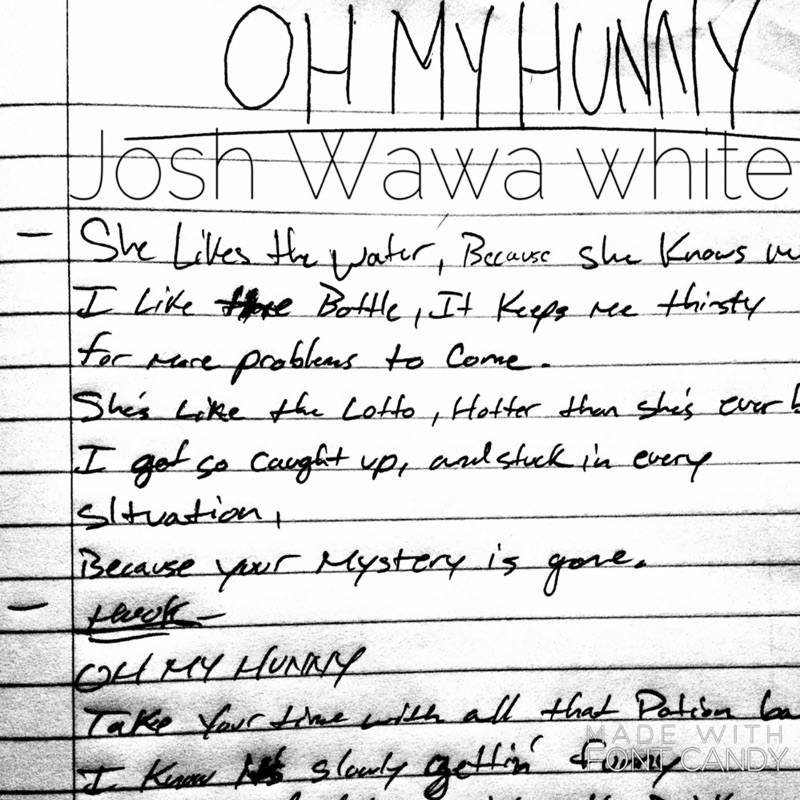 OH MY HUNNY
Josh Wawa white
- She Likes the water, Because she Knows
I Like the Bottle, It Keeps me thirsty
for more problems to Come.
She's Like the Lotto, Hotter than she's ever
I got so caught up, and stuck in every
situation,
Because your Mystery is gone.
- Hook -
OH MY HUNNY
Take your time with all that Potion
I Know slowly gettin' funny
MADE WITH
FONT CANDY